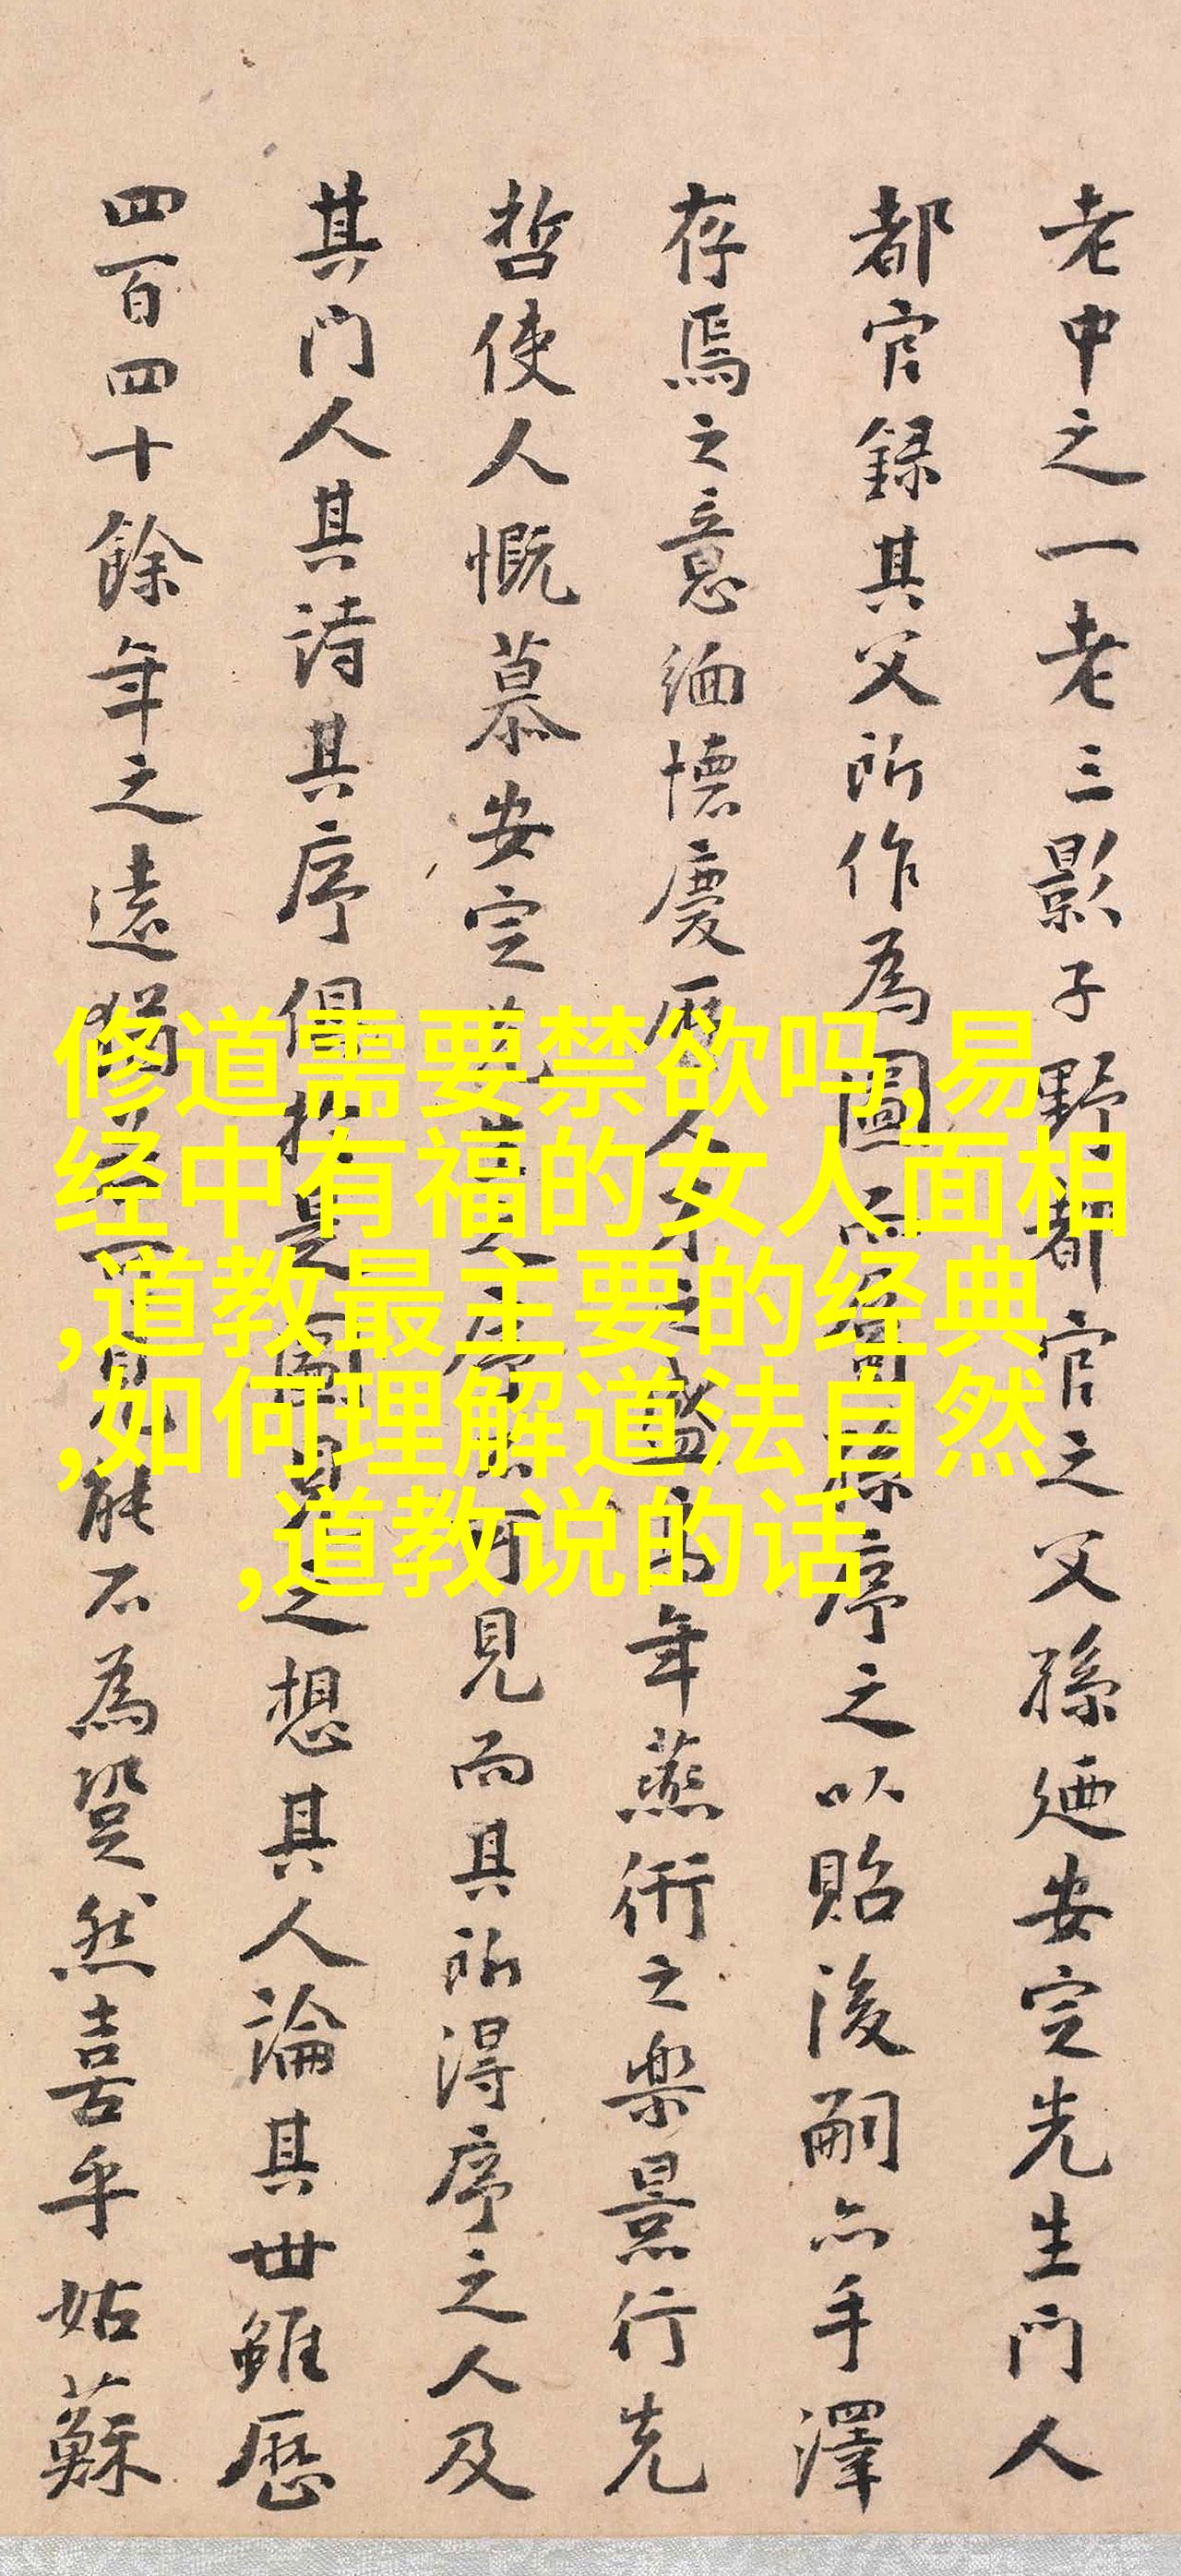 老中之一老三影子野都官之父孫廼安定先生門人
都官録其父所作為圖而孫序之以貽後嗣亦手澤
存焉之意緬懷慶曆人才之盛高年燕衎之樂景行先
哲使人慨慕安定見而其所得序之人及
其門人其詩其序是圖之想其人論其世雖歷
四百四十餘年之遠猶見能不為跫然喜乎姑蘇
修道需要禁欲吗,易
经中有福的女人面相
,道教最主要的经典
,如何理解道法自然
,道教说的话